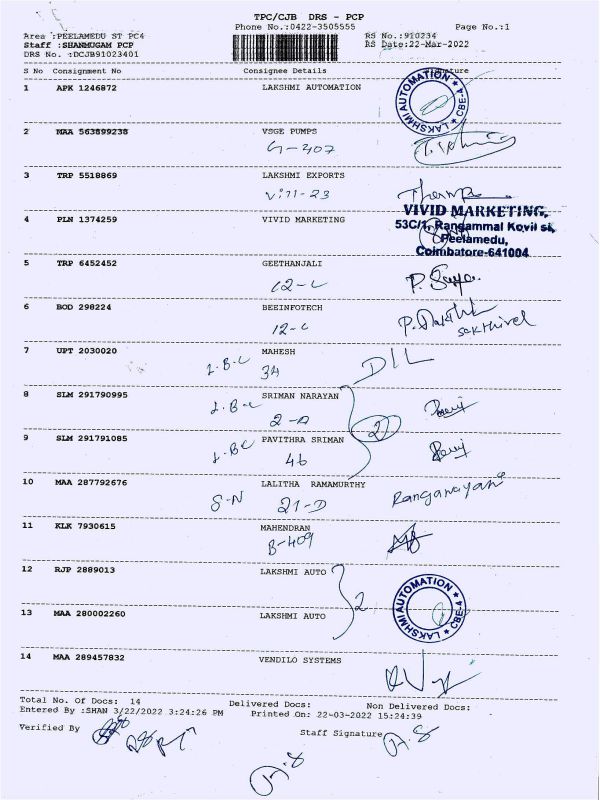 TPC/CJB DRS - PCP
Phone No.:0422-3505555 Page No.:1
Area :PEELAMEDU ST PC4 RS No.:910234
Staff :SHANMUGAM PCP RS Date:22-Mar-2022
DRS No. :DCJB91023401
S No Consignment No Consignee Details Signature
1 APK 1246872 LAKSHMI AUTOMATION
LAKSHMI AUTOMATION * CBE-4 *
2 MAA 563899238 VSGE PUMPS
G-407
3 TRP 5518869 LAKSHMI EXPORTS
4 PLN 1374259 VIVID MARKETING
VIVID MARKETING,
53C/1, Rangammal Kovil st,
Peelamedu,
Coimbatore-641004
5 TRP 6452452 GEETHANJALI
12-C
6 BOD 298224 BEEINFOTECH
12-C sakthivel
7 UPT 2030020 MAHESH
L.B.C 34 DIL
8 SLM 291790995 SRIMAN NARAYAN
L.B.C 2-A
2
9 SLM 291791085 PAVITHRA SRIMAN
L.B.C 46
10 MAA 287792676 LALITHA RAMAMURTHY
S-N 21-D Ranganayaki
11 KLK 7930615 MAHENDRAN
B-409
12 RJP 2889013 LAKSHMI AUTO
2
LAKSHMI AUTOMATION * CBE-4 *
13 MAA 280002260 LAKSHMI AUTO
14 MAA 289457832 VENDILO SYSTEMS
Total No. Of Docs: 14 Delivered Docs: Non Delivered Docs:
Entered By :SHAN 3/22/2022 3:24:26 PM Printed On: 22-03-2022 15:24:39
Verified By Staff Signature